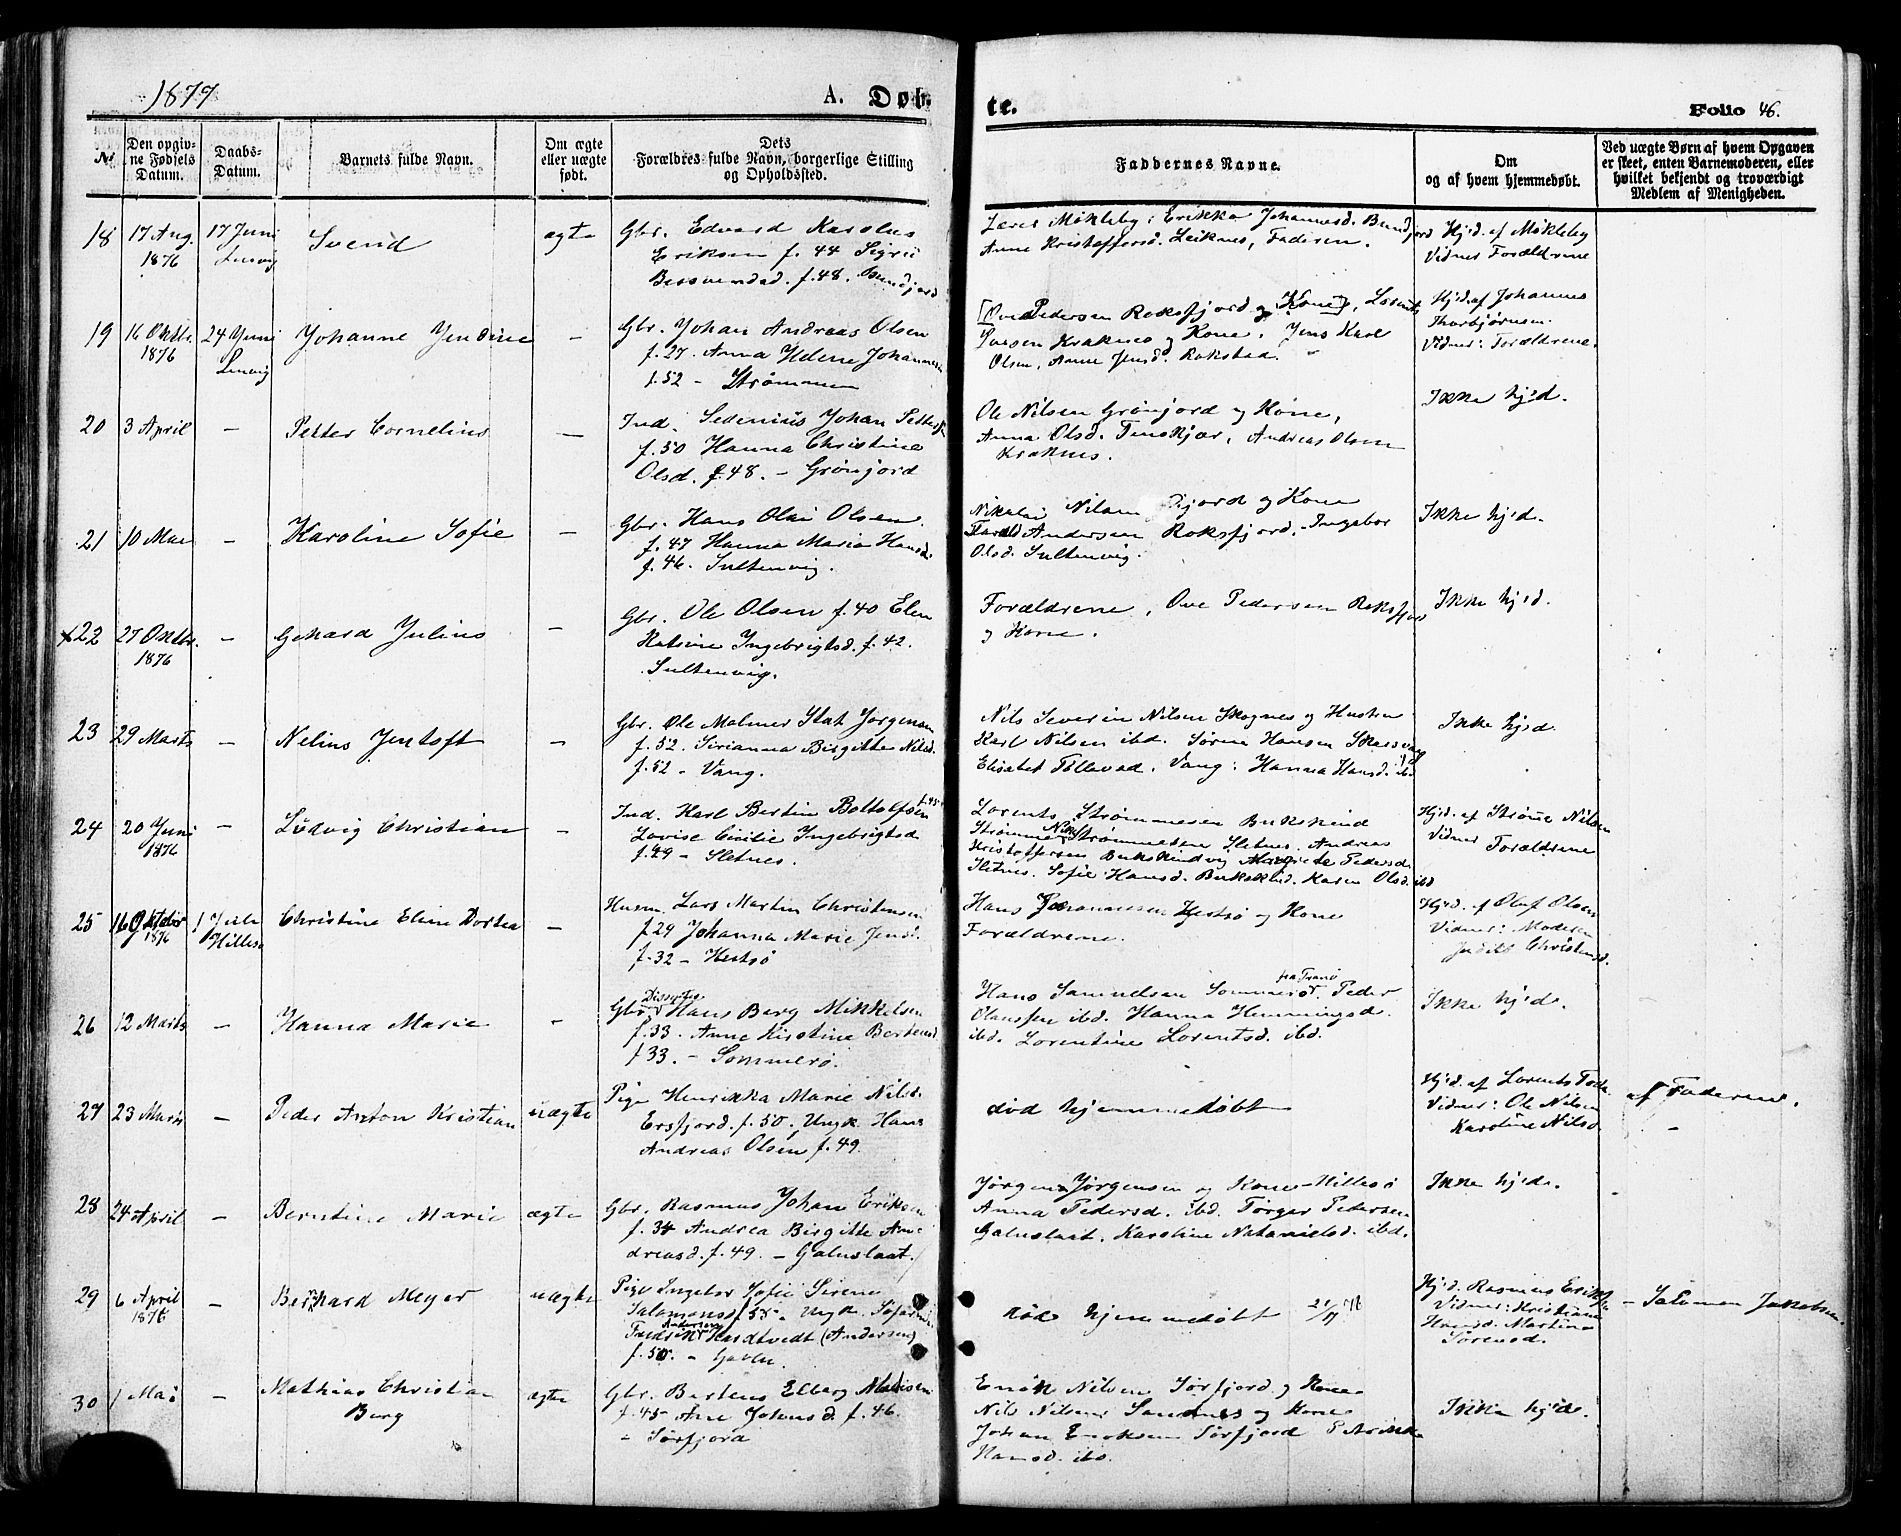 1877
A. Døb-
te.
Folio 46.
No
Den opgiv-
ne Fødsels
Datum.
Daabs-
Datum.
Barnets fulde Navn.
Om ægte
eller uægte
født.
Dets
Forældres fulde Navn, borgerlige Stilling
og Opholdssted.
Faddernes Navne.
Om
og af hvem hjemmedøbt.
Ved uægte Børn af hvem Opgaven
er skeet, enten Barnemoderen, eller
hvilket bekjendt og troværdigt
Medlem af Menigheden.
18 17 Aug. 1876 17 Juni Lenvig Svend ægte
Gbr. Edvard Karolus
Eriksen f. 44 Sigrii
f. 48.
Mökleby; Erikka Johannesd.
Anne Kristoffersd. Leiknes, Faderen.
Hjd. af Mökleby
Vidner Forældrene
19 16 Oktbr. 1876 24 Juni Lenvig Johanne Jendine -
Gbr. Johan Andreas Olsen
f. 27. Anna Helene
f. 52 - Strömmen
Ove Pedersen Roksfjord og Kone,
Kraknes og Kone. Jens Karl
Olsen, Anne Jensd. Rokstad.
Hjd. af Johannes
Thorbjörnsen.
Vidner: Forældrene.
20 3 April - Petter Cornelius -
Ind. Sedenius Johan
f. 50 Hanna Christine
Olsd. f. 48. - Grönjord
Ole Nilsen Grönjord og Kone,
Anna Olsd. Finskjær, Andreas Olsen
Kraknes.
Ikke hjd.
21 10 Mai - Karoline Sofie -
Gbr. Hans Olai Olsen.
f. 47 Hanna Maria Hansd.
f. 46. Sultenvig.
Nikolai Nilsen og Kone
Andersen Roksfjord. Ingebor
Olsd. Sultenvig.
Ikke hjd.
x22 27 Oktbr. 1876 - Gehard Julius -
Gbr. Ole Olsen f. 40 Elen
Katrine Ingebrigtsd. f. 42.
Sultenvig.
Forældrene, Ove Pedersen Roksfjord
og Kone.
Ikke hjd.
23 29 Marts - Nelius Jentoft -
Gbr. Ole Molmer Stat Jörgensen
f. 52. Sirianna Birgitte Nilsd.
f. 52 - Vang.
Nils Severin Nilsen Skognes og Hustru
Karl Nilsen ibd. Sörine Hansen
Elisabet Tollevsd. Vang; Hanna Hansd. ibd
Ikke hjd.
24 20 Juni 1876 - Ludvig Christian -
Ind. Karl Bertin Boltolfsen f. 45
Lovise Cicilie Ingebrigtsd
f. 49 - Sletnes.
Lorents Strömmesen Bukskind
Strömme Nils Strömmesen Sletnes. Andreas
Kristoffersen Bukskind og Margrete Pedersd.
Sletnes. Sofie Hansd. Bukskind. Karen Olsd. ibd
Hjd. af Ströme Nilsen
Vidner
Forældrene
25 16 Oktober 1876 1 Juli Hillesø Christine Eline Dortea -
Husm. Lars Martin Christensen
f. 29 Johanna Marie Jensd.
f. 32 - Hestsö
Hans Johannesen Hestsö og Kone
Forældrene.
Hjd. af Oluf Olsen
Vidner: Moderen
Judith Christensd.
26 12 Marts - Hanna Marie -
Dissenter
Gbr. Hans Berg Mikkelsen
f. 33. Anne Kirstine
f. 33. - Sommerö.
Hans Samuelsen Sommerö fra Tranö. Peder
Olaussen ibd. Hanna Hemmingsd.
ibd. Lorentine Lorentsd. ibd.
Ikke hjd.
27 23 Marts - Peder Anton Kristian uægte
Pige Henrikka Marie Nilsd.
Ersfjord. f. 50. Ungk. Hans
Andreas Olsen f. 49.
död hjemmedöbt
Hjd. af Lorents
Vidner: Ole Nilsen
Karoline Nilsd.
af Faderen.
28 24 April - Berntine Marie ægte
Gbr. Rasmus Johan Eriksen
f. 34 Andrea Birgitte An-
dreasd. f. 49. - Galnslaat.
Jörgen Jörgensen og Kone Hillesö
Anna Pedersd. ibd. Törger Pedersen
Galnslaat. Karoline Natanielsd. ibd.
Ikke hjd.
29 6 April 1876 - Bernhard Meyer uægte
Pige Ingebor Sofie Sirene
Salomonsd f. 55 - Ungk.
Fredrik Andersen Hardtvedt (Andersen)
f. 50. -
död hjemmedöbt
Hjd. Rasmus
Vidner: Kristiane
Hansd. Martine
Sörensd.
- Salomon Jakobsen.
30 1 Mai - Mathias Christian
Berg
ægte
Gbr. Bertens Elberg
f. 45 Ane Johnsd. f. 46.
- Sörfjord
Enok Nilsen Sörfjord og Kone
Nils Nilsen Sandnes og Kone
Johan Enoksen Sörfjord
Hansd. ibd.
Ikke hjd.